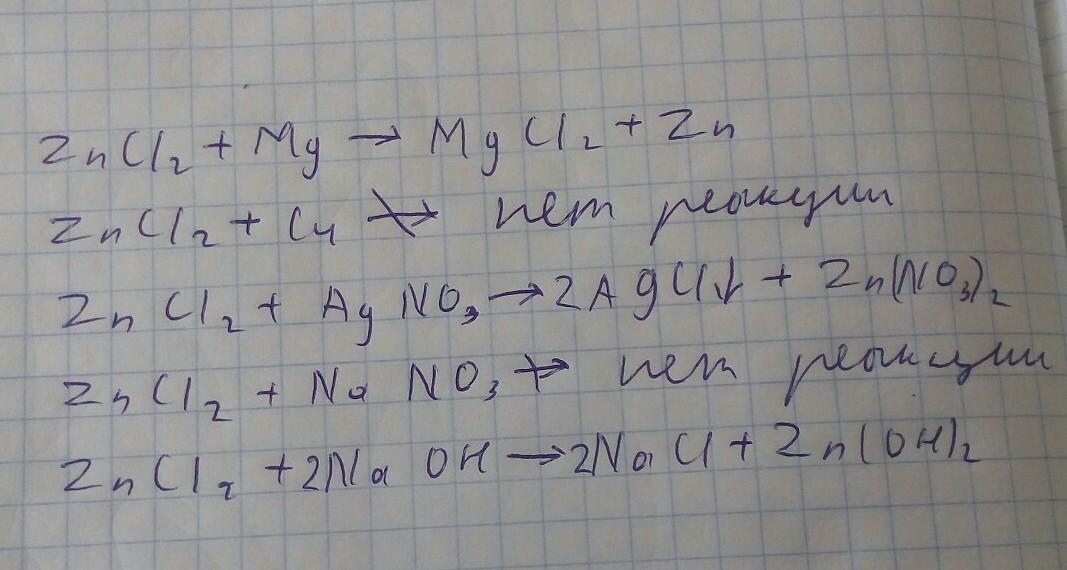 ZnCl₂ + Mg → MgCl₂ + Zn
ZnCl₂ + Cu ↛ нет реакции
ZnCl₂ + AgNO₃ → 2AgCl↓ + Zn(NO₃)₂
ZnCl₂ + NaNO₃ ↛ нет реакции
ZnCl₂ + 2NaOH → 2NaCl + Zn(OH)₂